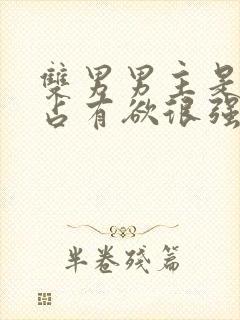 双男男主是
占有欲很强
半卷残篇